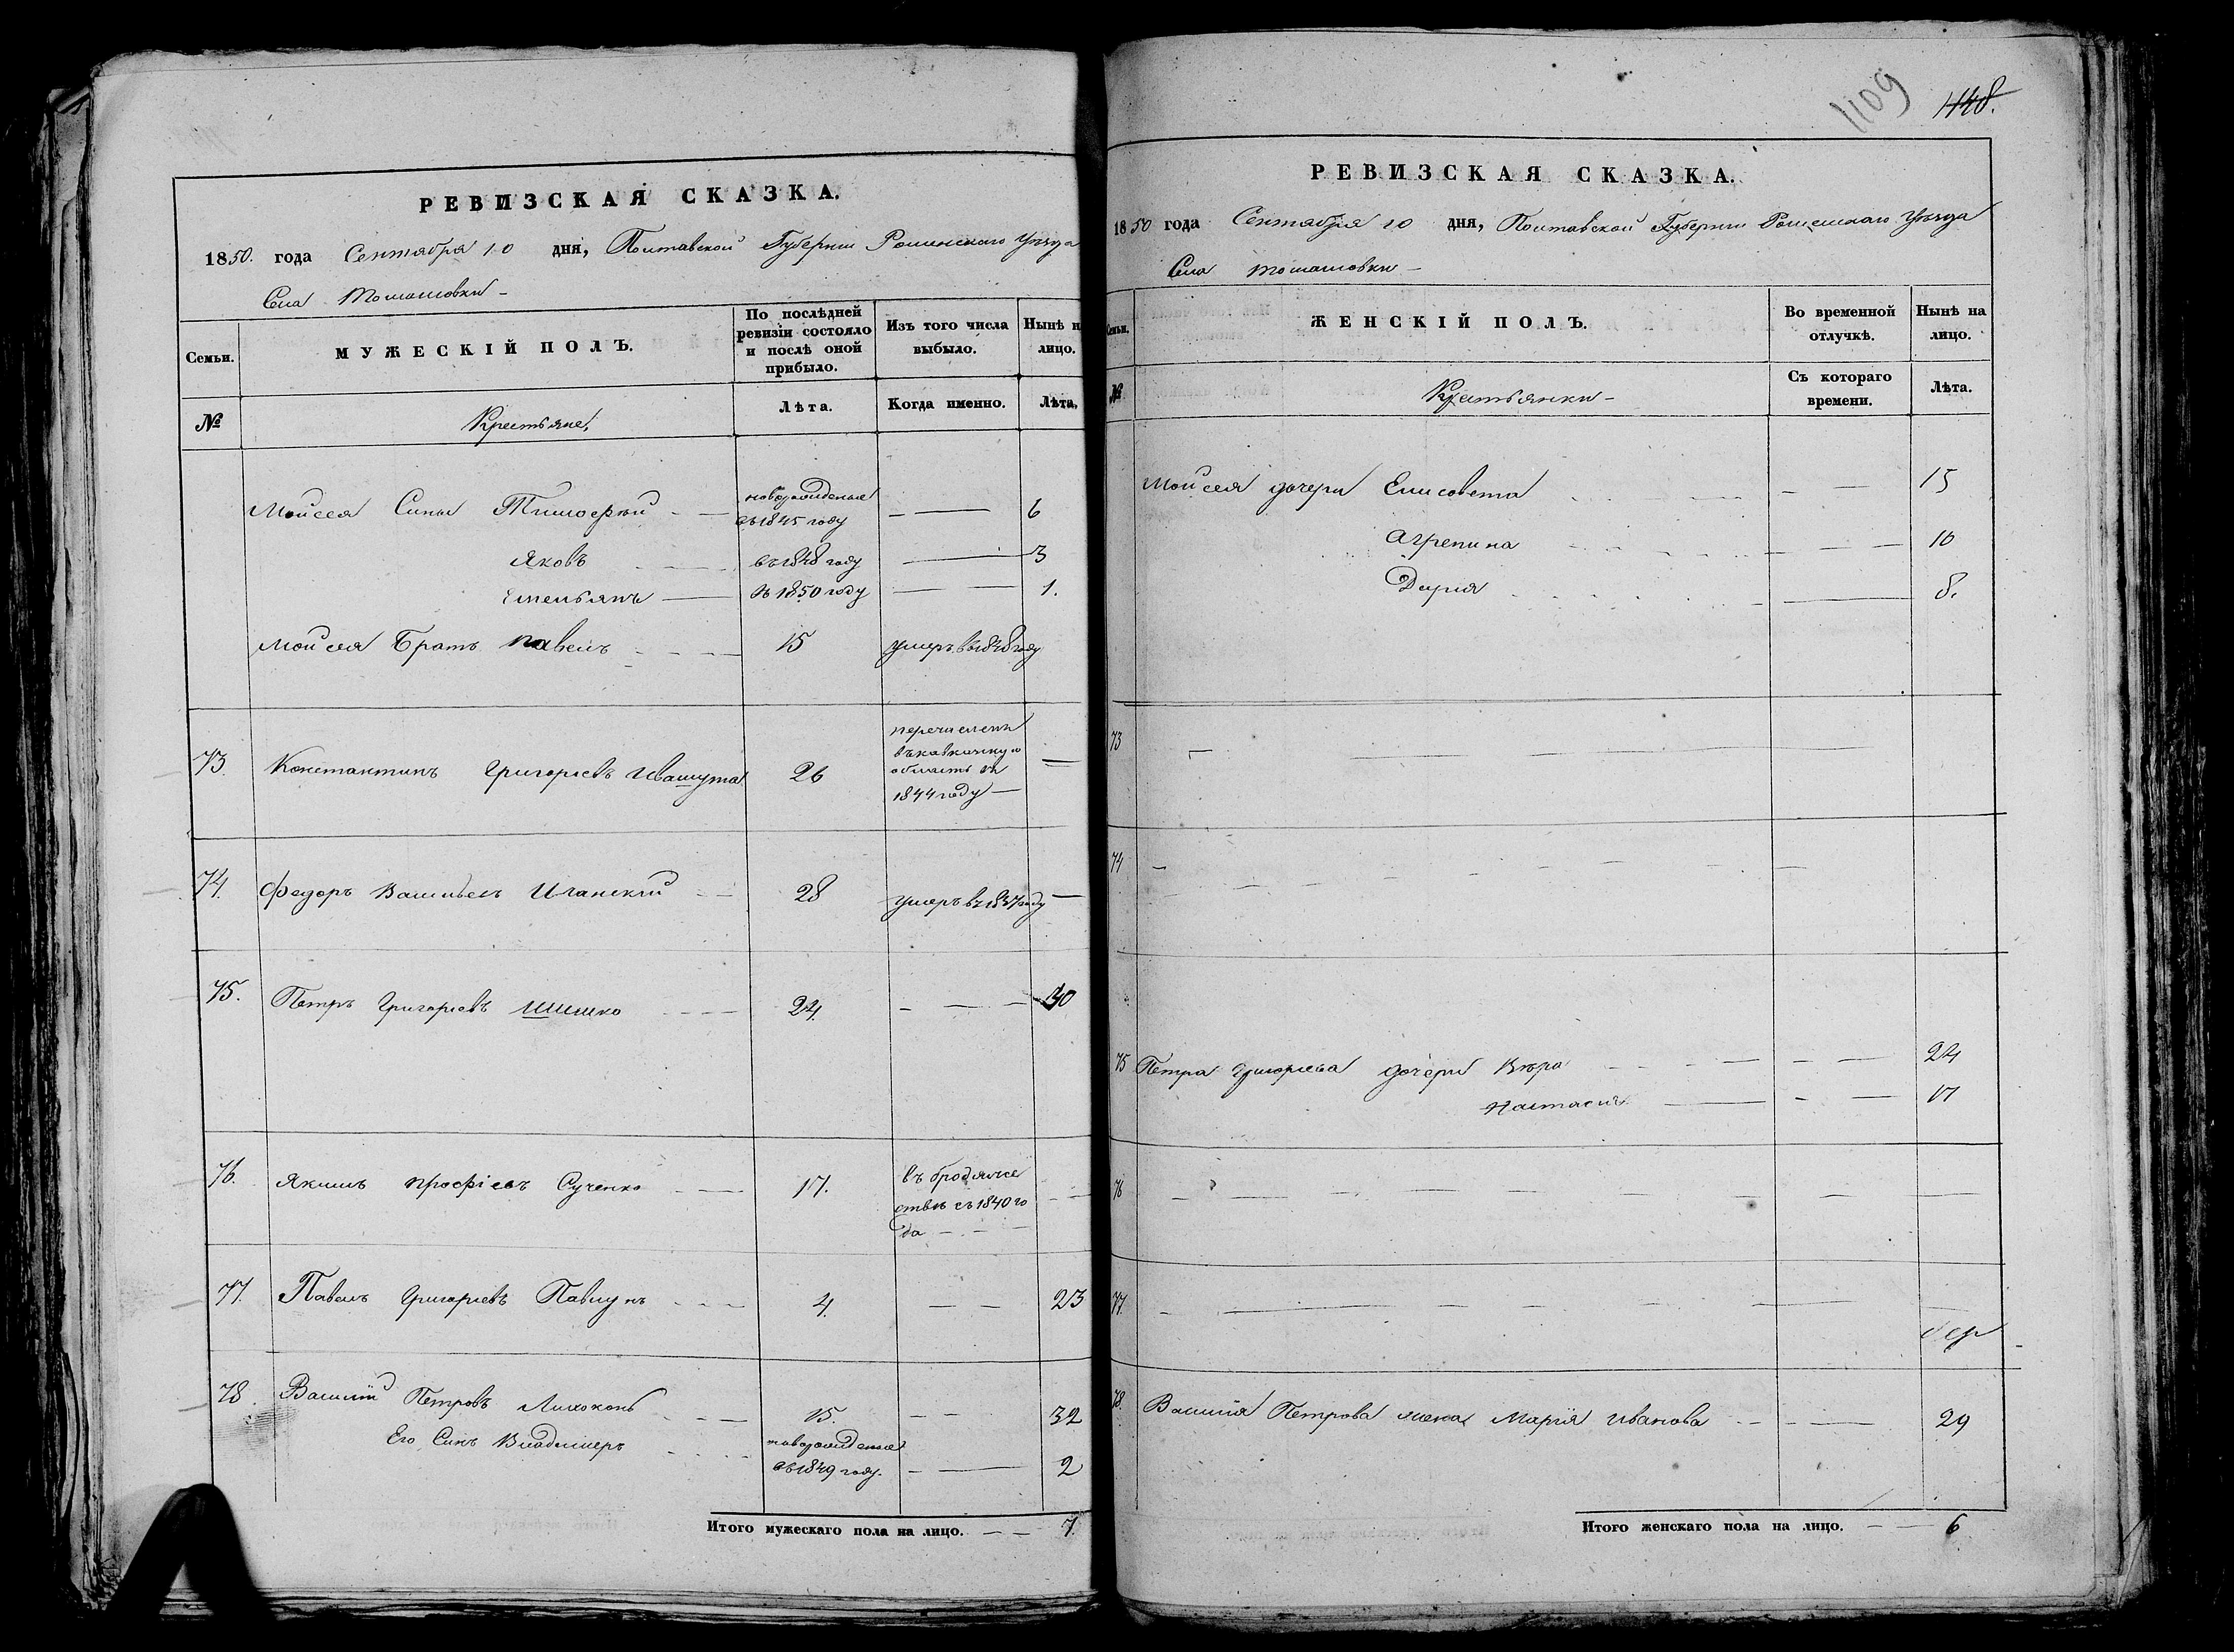 РЕВИЗСКАЯ СКАЗКА.
1850. года Сентября 10 дня, Полтавской Губернии Роменскаго Уѣзда
Села Томашовки –
Семьи.
МУЖЕСКІЙ ПОЛЪ.
По послѣдней
ревизіи состояло
и послѣ оной
прибыло.
Изъ того числа
выбыло.
Нынѣ н
лицо.
№
Крестьяне,
Лѣта.
Когда именно.
Лѣта,
Мойсея Сины Тимофѣй новорожденые въ 1845 году 6
Яковъ въ 1848 году 3
Емельянъ въ 1850 году 1.
Мойсея Братъ Павелъ 15 умеръ въ 1848 году
73. Константинъ Григорьевъ Ивашута 26
перечисленъ
въ кавказкую
область въ
1844 году –
74. Федоръ Васильевъ 28 умеръ въ 1837 году –
75. Петръ Григорьевъ Шишко 24. 30
76. Якимъ Сученко 17.
въ бродяже
ствѣ съ 1840 го
да
77. Павелъ Григорьевъ Павлунъ 4. 23
78. Василій Петровъ Лихоконь 15. 32
Его Синъ Владимеръ
новорожденые
въ 1849 году. 2
Итого мужескаго пола на лицо. — — 7
1109 1148.
РЕВИЗСКАЯ СКАЗКА.
1850 года Сентября 10 дня, Полтавской Губернии Роменскаго Уѣзда
Села Томашовки –
Семьи.
ЖЕНСКІЙ ПОЛЪ.
Во временной
отлучкѣ.
Нынѣ на
лицо.
№
Крестьянки –
Съ котораго
времени.
Лѣта.
Мойсея дочери Елисовета 15
Агрепина 10
Дария 8.
73
74
75 Петра Григорьева дочери Вѣра 24
Настасия 17
76
77.
78. Василія Петрова жена Марія Иванова 29
Итого женскаго пола на лицо. — — 6